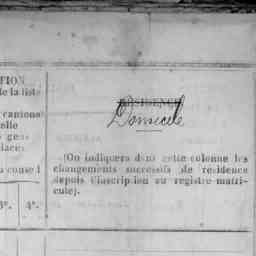 TION
de la liste
canton
elle
gen
lace:
a conse l
3º. 4º.
RESIDENCE
Domicile
(On indiquera dans cette colonne les
changements successifs de residence
depuis l'inscription au registre-matri-
cule).